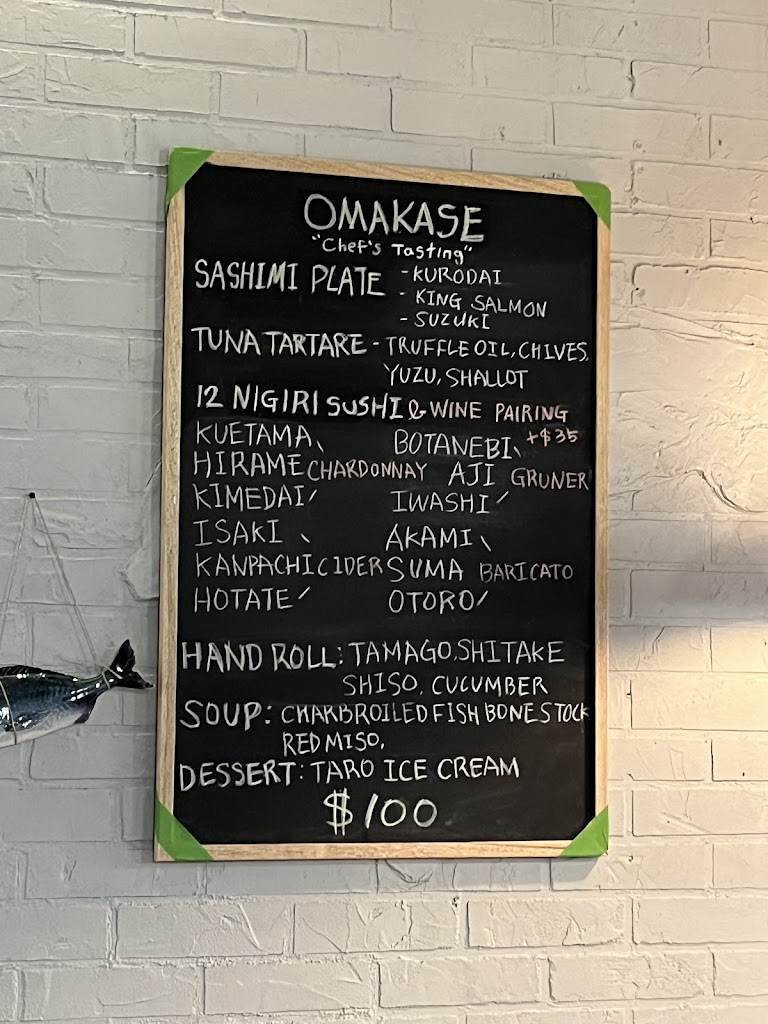 OMAKASE
"Chef's Tasting"
SASHIMI PLATE - KURODAI
- KING SALMON
- SUZUKI
TUNA TARTARE - TRUFFLE OIL, CHIVES,
YUZU, SHALLOT
12 NIGIRI SUSHI & WINE PAIRING
+$35
KUETAMA BOTANEBI
HIRAME CHARDONNAY AJI GRUNER
KIMEDAI IWASHI
ISAKI AKAMI
KANPACHI CIDER SUMA BARICATO
HOTATE OTORO
HAND ROLL: TAMAGO, SHITAKE
SHISO, CUCUMBER
SOUP: CHARBROILED FISH BONE STOCK
RED MISO,
DESSERT: TARO ICE CREAM
$100